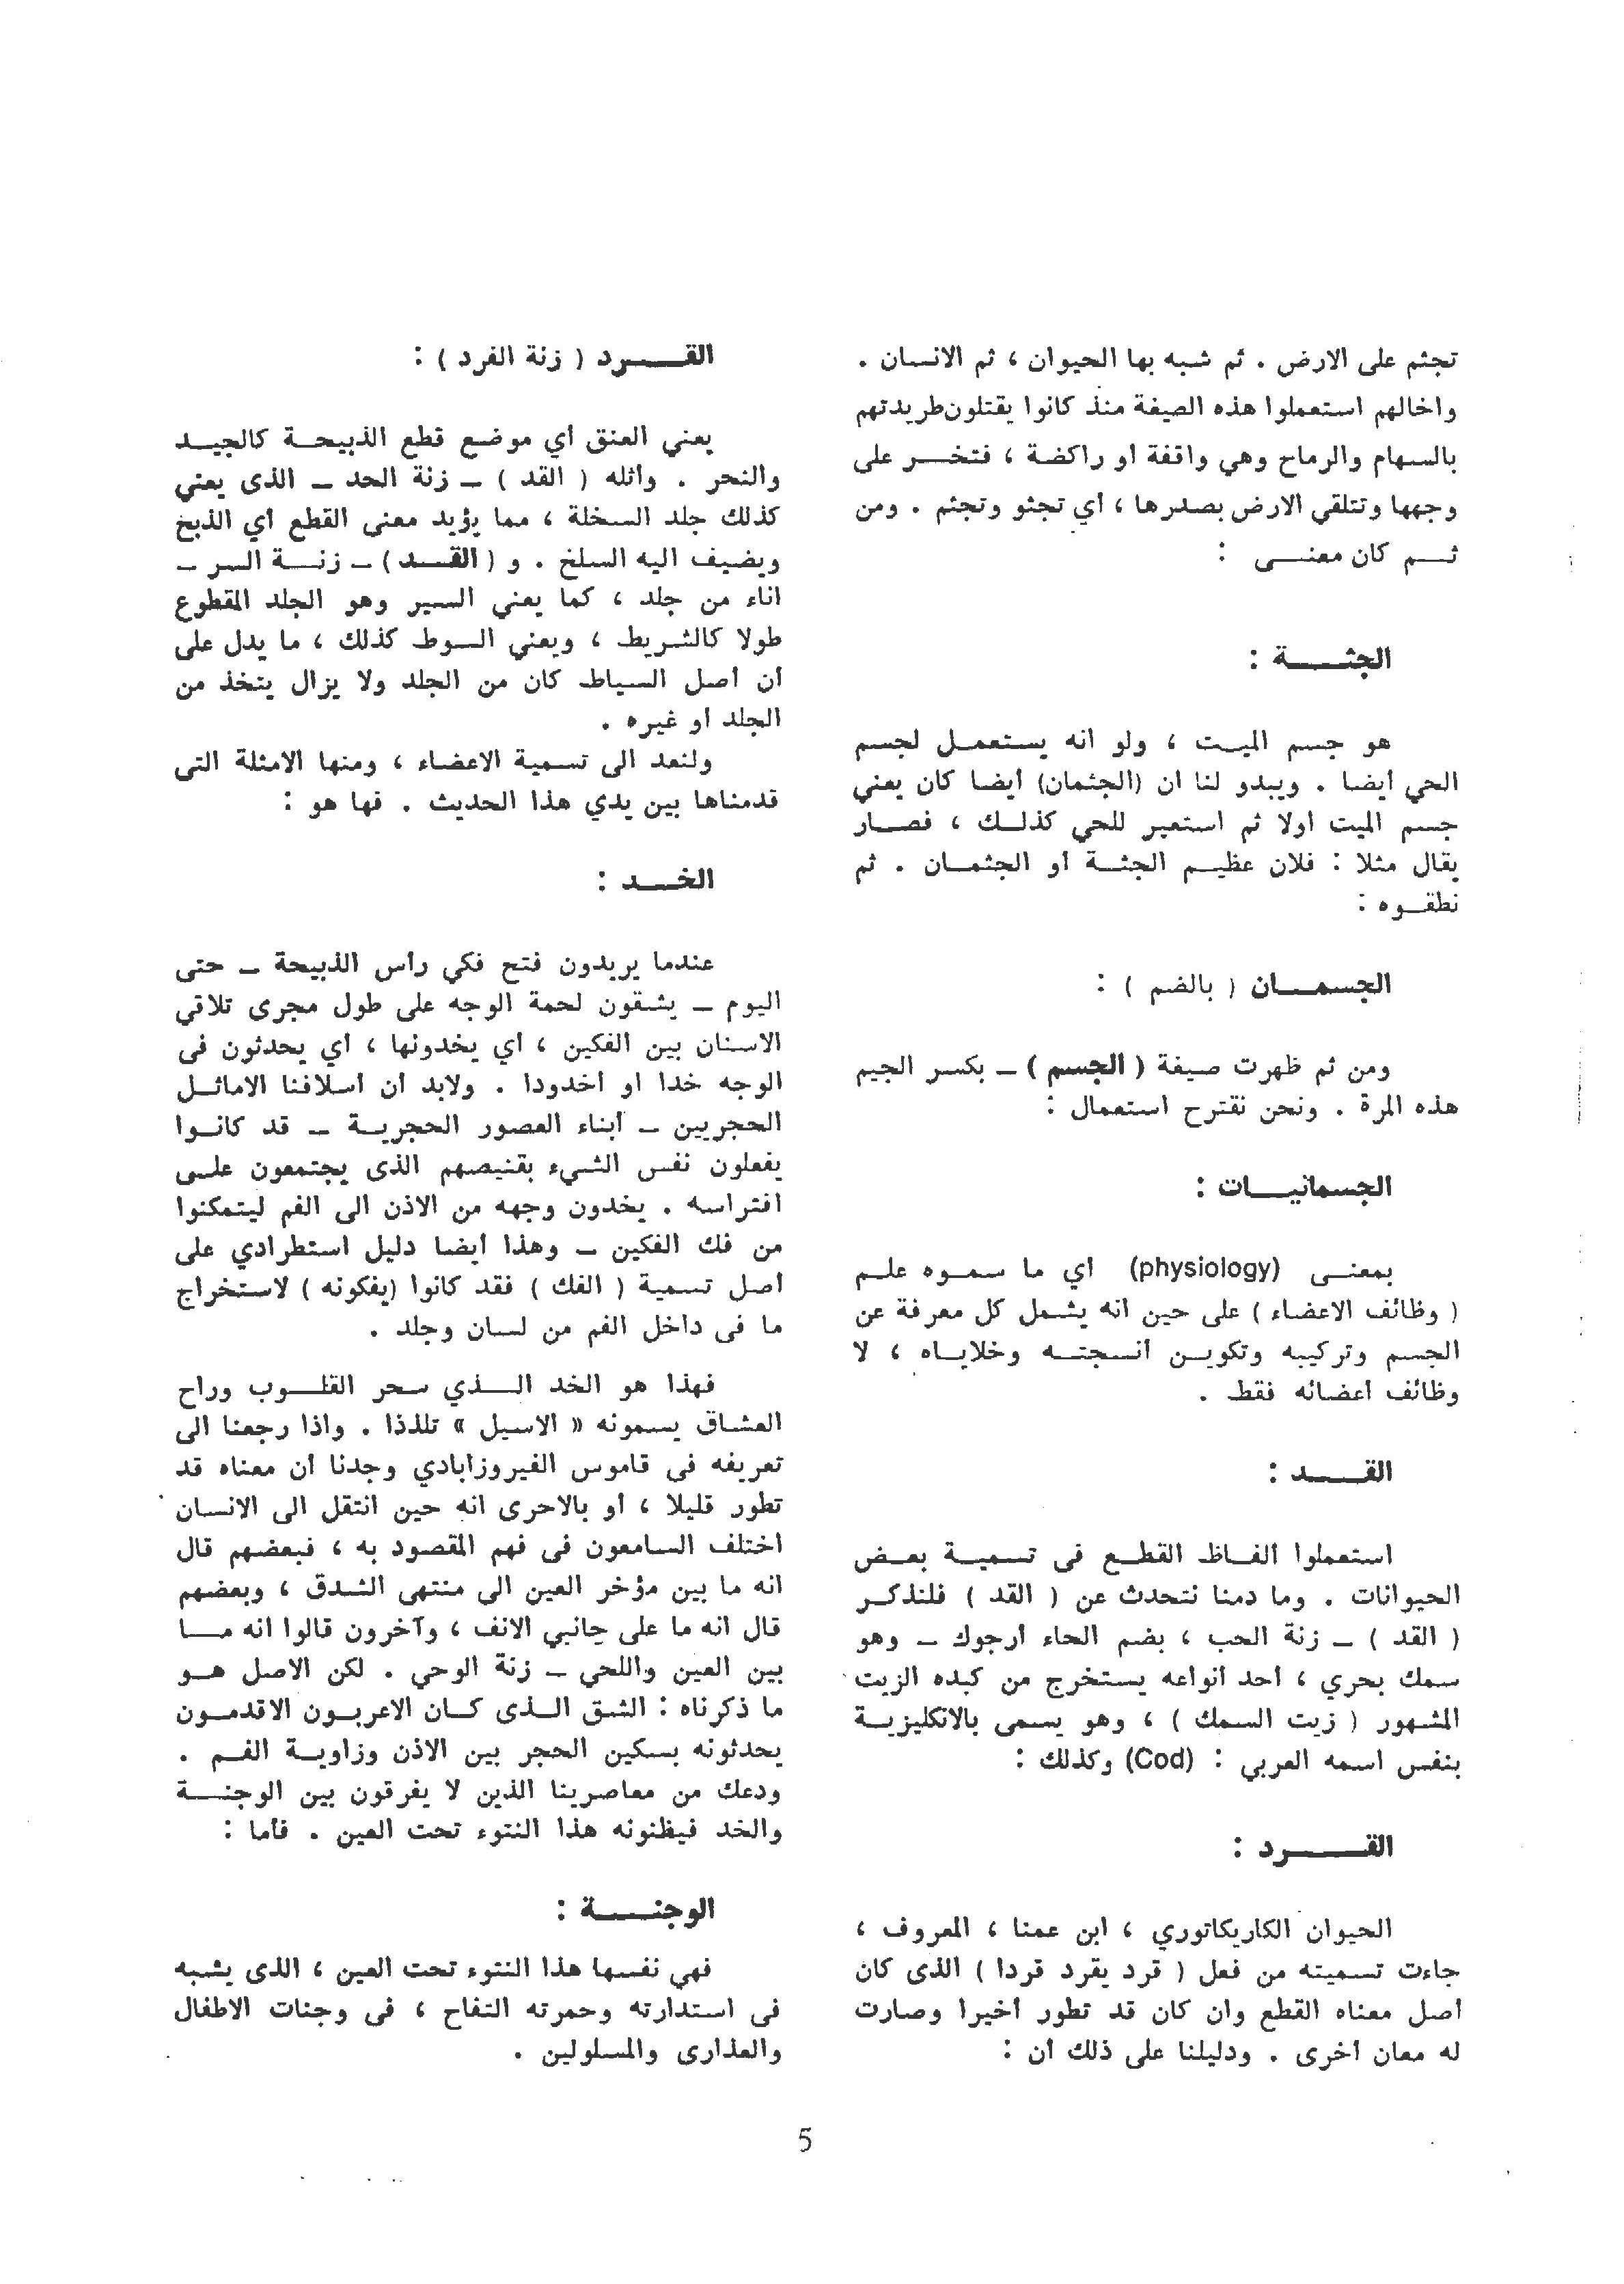 تجثم على الارض . ثم شبه بها الحيوان ، ثم الانسان .
واخالهم استعملوا هذه الصيغة منذ كانوا يقتلون طريدتهم
بالسهام والرماح وهي واقفة أو راكضة ، فتخر على
وجهها وتتلقي الارض بصدرها ، أي تجثو وتجثم . ومن
ثم كان معنى :
الجثة :
هو جسم الميت ، ولو انه يستعمل لجسم
الحي أيضا . ويبدو لنا ان (الجثمان) أيضا كان يعني
جسم الميت اولا ثم استعير للحي كذلك ، فصار
يقال مثلا : فلان عظيم الجثة أو الجثمان . ثم
نطقوه :
الجسمان ( بالضم ) :
ومن ثم ظهرت صيغة ( الجسم ) – بكسر الجيم
هذه المرة . ونحن نقترح استعمال :
الجسمانيات :
بمعنى (physiology) أي ما سموه علم
( وظائف الاعضاء ) على حين انه يشمل كل معرفة عن
الجسم وتركيبه وتكوين أنسجته وخلاياه ، لا
وظائف أعضائه فقط .
القد :
استعملوا الفاظ القطع فى تسمية بعض
الحيوانات . وما دمنا نتحدث عن ( القد ) فلنذكر
( القد ) – زنة الحب ، بضم الحاء أرجوك – وهو
سمك بحري ، احد انواعه يستخرج من كبده الزيت
المشهور ( زيت السمك ) ، وهو يسمى بالانكليزية
بنفس اسمه العربي : (Cod) وكذلك :
القرد :
الحيوان الكاريكاتوري ، ابن عمنا ، المعروف ،
جاءت تسميته من فعل ( قرد يقرد قردا ) الذى كان
أصل معناه القطع وان كان قد تطور أخيرا وصارت
له معان أخرى . ودليلنا على ذلك أن :
القرد ( زنة الفرد ) :
يعني العنق أي موضع قطع الذبيحة كالجيد
والنحر . وأثله ( القد ) – زنة الحد – الذى يعني
كذلك جلد السخلة ، مما يؤيد معنى القطع أي الذبح
ويضيف اليه السلخ . و ( القد ) – زنة السر –
اناء من جلد ، كما يعني السير وهو الجلد المقطوع
طولا كالشريط ، ويعني السوط كذلك ، ما يدل على
أن أصل السياط كان من الجلد ولا يزال يتخذ من
الجلد أو غيره .
ولنعد الى تسمية الاعضاء ، ومنها الامثلة التى
قدمناها بين يدي هذا الحديث . فها هو :
الخد :
عندما يريدون فتح فكي رأس الذبيحة – حتى
اليوم – يشقون لحمة الوجه على طول مجرى تلاقي
الاسنان بين الفكين ، أي يخدونها ، أي يحدثون فى
الوجه خدا او أخدودا . ولابد أن أسلافنا الامائل
الحجريين – أبناء العصور الحجرية – قد كانوا
يفعلون نفس الشيء بقنيصهم الذى يجتمعون على
افتراسه . يخدون وجهه من الاذن الى الفم ليتمكنوا
من فك الفكين – وهذا أيضا دليل استطرادي على
أصل تسمية ( الفك ) فقد كانوا (يفكونه ) لاستخراج
ما فى داخل الفم من لسان وجلد .
فهذا هو الخد الذي سحر القلوب وراح
العشاق يسمونه « الاسيل » تلذذا . واذا رجعنا الى
تعريفه فى قاموس الفيروزابادي وجدنا أن معناه قد
تطور قليلا ، أو بالاحرى انه حين انتقل الى الانسان
اختلف السامعون فى فهم المقصود به ، فبعضهم قال
انه ما بين مؤخر العين الى منتهى الشدق ، وبعضهم
قال انه ما على جانبي الانف ، وآخرون قالوا انه ما
بين العين واللحي – زنة الوحي . لكن الاصل هو
ما ذكرناه : الشق الذى كان الاعربون الاقدمون
يحدثونه بسكين الحجر بين الاذن وزاوية الفم .
ودعك من معاصرينا الذين لا يفرقون بين الوجنة
والخد فيظنونه هذا النتوء تحت العين . فأما :
الوجنة :
فهي نفسها هذا النتوء تحت العين ، الذى يشبه
فى استدارته وحمرته التفاح ، فى وجنات الاطفال
والعذارى والمسلولين .
5